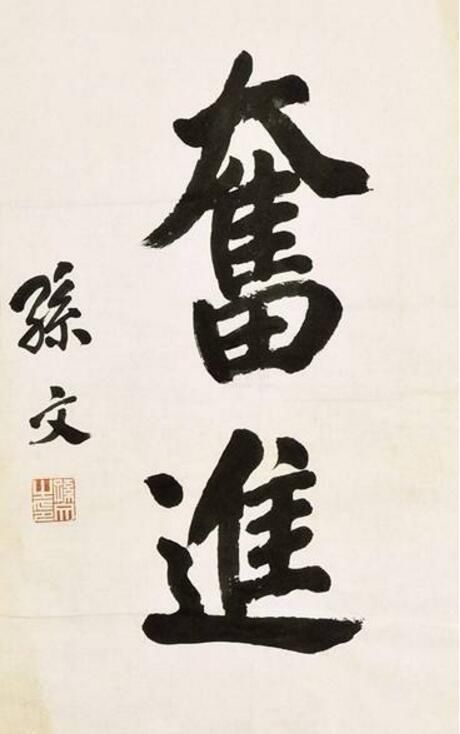 奮進
孫文
孫文之印